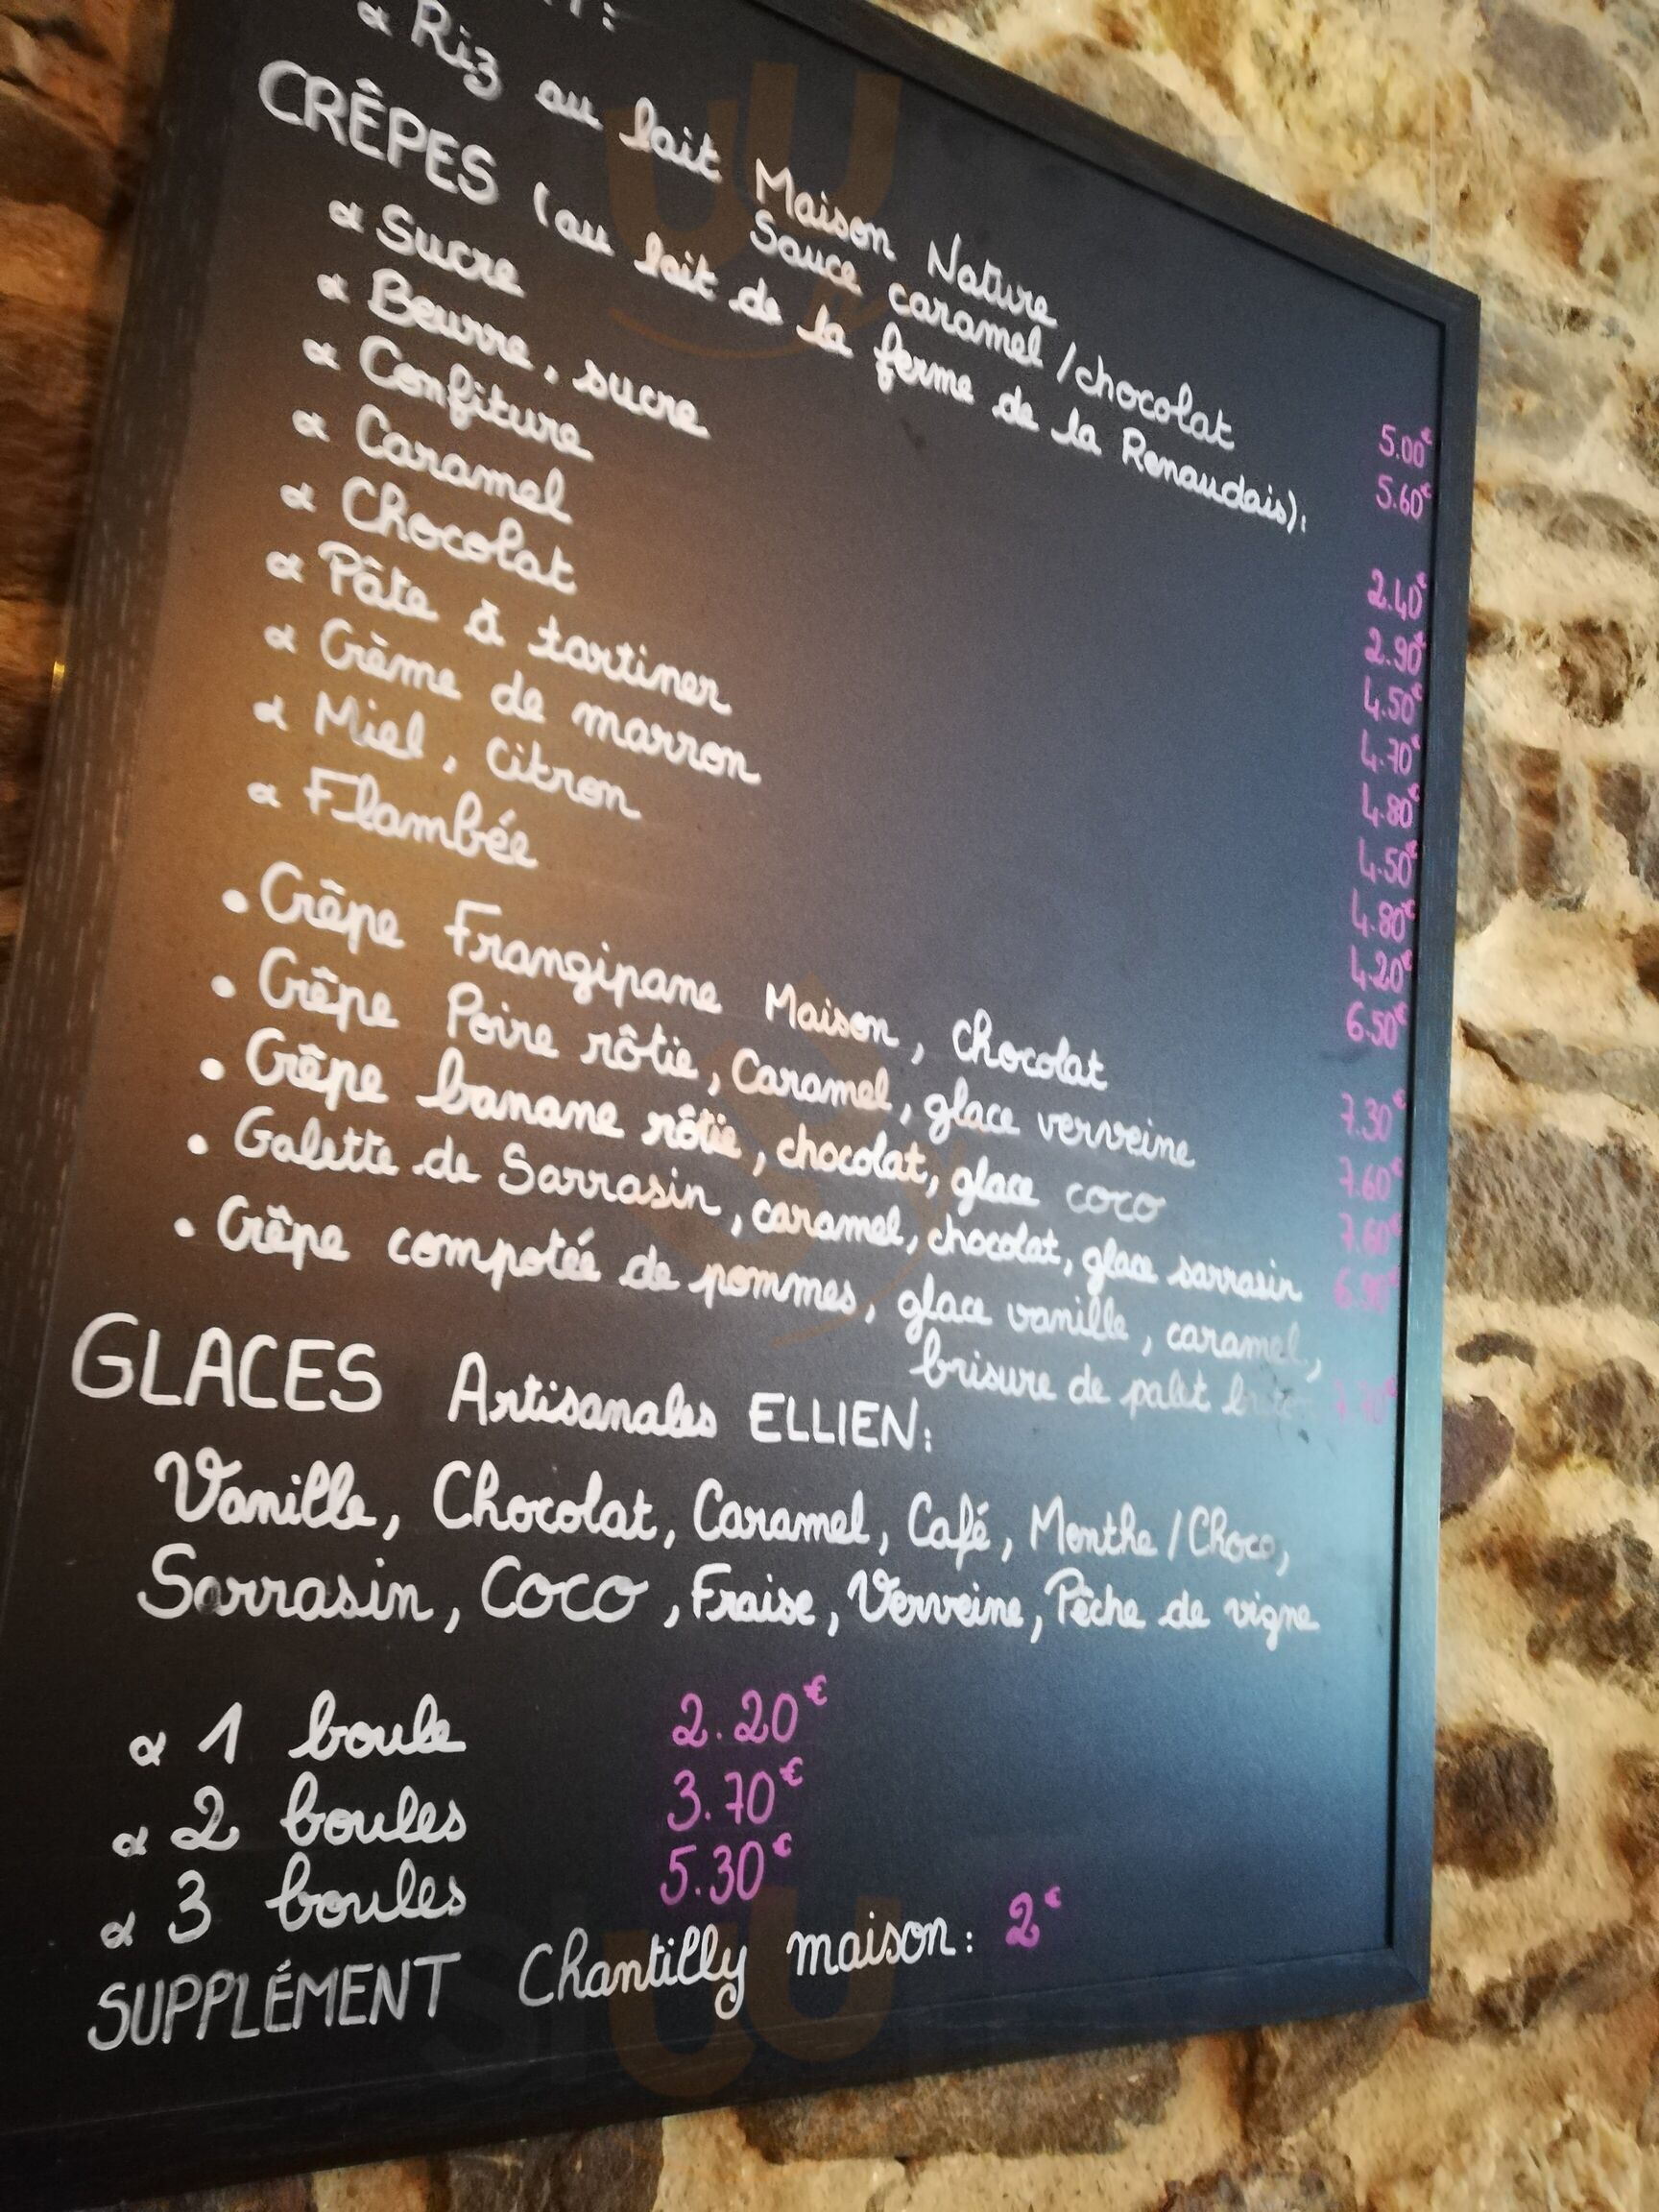 Riz au lait Maison Nature 5.00€
Sauce caramel / chocolat 5.60€
CRÊPES (au lait de la ferme de la Renaudais):
Sucre 2.40€
Beurre, sucre 2.90€
Confiture 4.50€
Caramel 4.70€
Chocolat 4.80€
Pâte à tartiner 4.50€
Crème de marron 4.80€
Miel, citron 4.20€
Flambée 6.50€
• Crêpe Frangipane Maison, chocolat 7.30€
• Crêpe Poire rôtie, Caramel, glace verveine 7.60€
• Crêpe banane rôtie, chocolat, glace coco 7.60€
• Galette de Sarrasin, caramel, chocolat, glace sarrasin 6.90€
• Crêpe compotée de pommes, glace vanille, caramel,
brisure de palet
GLACES Artisanales ELLIEN:
Vanille, Chocolat, Caramel, Café, Menthe / Choco,
Sarrasin, Coco, Fraise, Verveine, Pêche de vigne
1 boule 2.20€
2 boules 3.70€
3 boules 5.30€
SUPPLÉMENT Chantilly maison: 2€